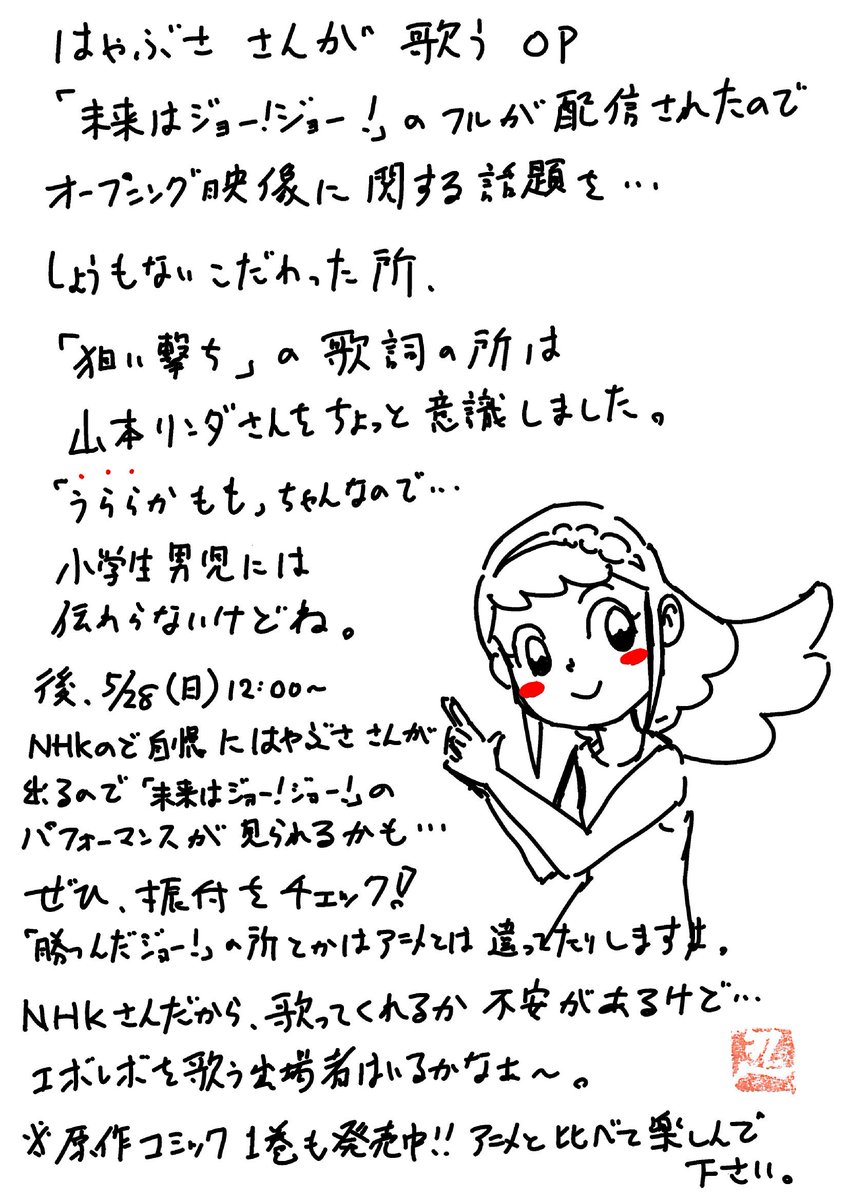 はやぶさ さんが 歌う OP
「未来はジョー!ジョー!」のフルが配信されたので
オープニング映像に関する話題を…
しょうもないこだわった所、
「狙い撃ち」の歌詞の所は
山本リンダさんをちょっと意識しました。
「うららかもも」ちゃんなので…
小学生男児には
伝わらないけどね。
後、5/28(日)12:00~
NHKのど自慢にはやぶささんが
出るので「未来はジョー!ジョー!」の
パフォーマンスが見られるかも…
ぜひ、振付をチェック!!
「勝つんだジョー!」の所とかはアニメとは違ってたりしますよ。
NHKさんだから、歌ってくれるか不安があるけど…
エボレボを歌う出場者はいるかなぁ~。
※原作コミック1巻も発売中!!アニメと比べて楽しんで
下さい。